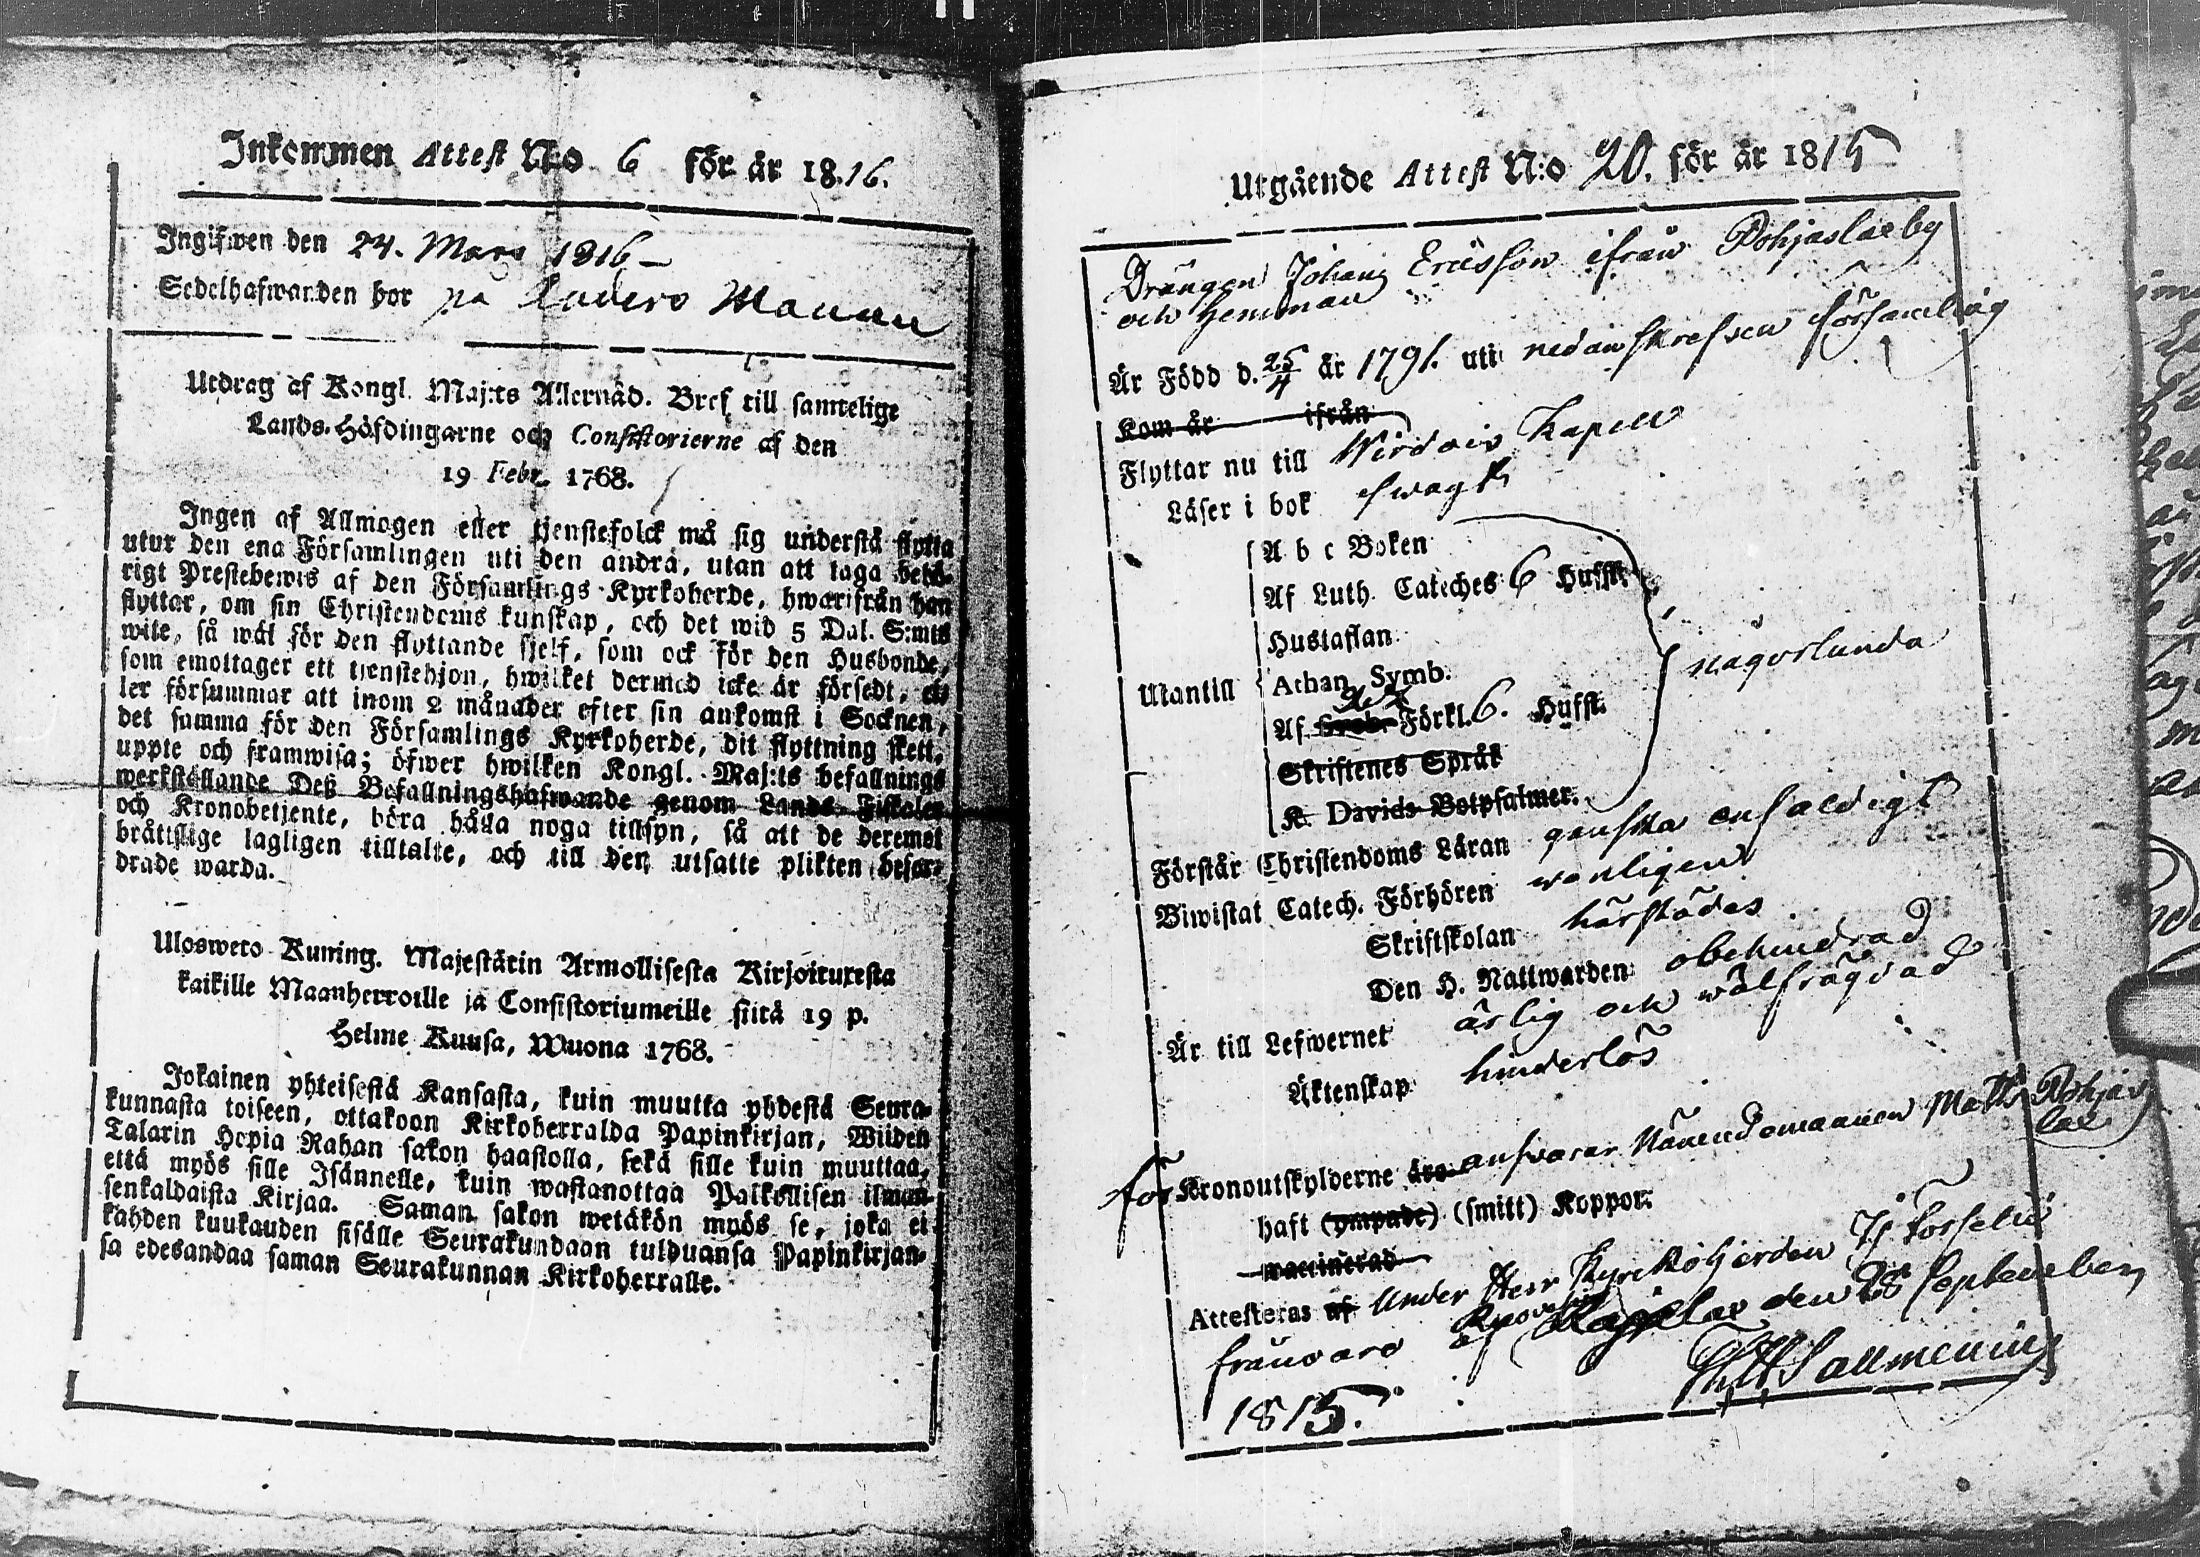 Inkommen Attest N:o 6 för år 18.16.
Ingifwen den 24. Mars 1816 –
Sedelhafwanden bor på Anders Mannu
Utdrag af Kongl. Maj:ts Allernåd. Bref till samtelige
Lands-Höfdingarne och Consistorierne af den
19 Febr. 1768.
Ingen af Allmogen eller tjenstefolck må sig understå flytta
utur den ena Församlingen uti den andra, utan att taga behö-
rigt Prestebewis af den Församlings Kyrkoherde, hwarifrån han
flyttar, om sin Christendoms kunskap, och det wid 5 Dal. S:mts
wite, så wäl för den flyttande sjelf, som ock för den Husbonde,
som emottager ett tjenstehjon, hwilket dermed icke är försedt, el-
ler försummar att inom 2 månader efter sin ankomst i Socknen,
det samma för den Församlings Kyrkoherde, dit flyttning skett,
uppte och framwisa; öfwer hwilken Kongl. Maj:ts befallnings
werkställande Deß Befallningshafwande genom Lands-Fiskaler
och Kronobetjente, böra hålla noga tillsyn, så att de deremot
bråttslige lagligen tilltalte, och till den utsatte plikten befor-
drade warda.
Ulosweto Kuning. Majestätin Armollisesta Kirjoituxesta
kaikille Maanherroille ja Consistoriumeille siitä 19 p.
Helme Kuusa, Wuona 1768.
Jokainen yhteisestä Kansasta, kuin muutta yhdestä Seura-
kunnasta toiseen, ottakoon Kirkoherralda Papinkirjan, Wiiden
Talarin Hopia Rahan sakon haastolla, sekä sille kuin muuttaa,
että myös sille Isännelle, kuin wastanottaa Palkollisen ilman
senkaldaista Kirjaa. Saman sakon wetäkön myös se, joka ei
kahden kuukauden sisälle Seurakundaan tulduansa Papinkirjan-
sa edesandaa saman Seurakunnan Kirkoherralle.
Utgående Attest N:o 20. för år 1815
Drängen Johan Ericsson ifrån Pohjaslaxby
och Hemman
Är Född d. 25/4 år 1791. uti nedanskrefven församling
Kom år ifrån
Flyttar nu till Wirdois Kapell
Läser i bok swagt
A b c Boken
Af Luth. Cateches 6 Hufst.
Hustaflan
Utantill Athan. Symb.
någorlunda
Af Sveb. Förkl. 6. Hufst.
Skriftenes Språk
K. Davids Botpsalmer.
Förstår Christendoms Läran ganska enfaldigt
Biwistat Catech. Förhören wanligen
Skriftskolan härstädes
Den H. Nattwarden obehindrad
Är till Lefwernet ärlig och wälfrägdad
Äktenskap hinderlös
för Kronoutskylderne äro ansvarar Nämndemannen Matts Pohjas
lax
haft (ympade) (smitt) Koppor.
waccinerad
Attesteras af Under Herr Kyrkoherden Forselii
frånvaro af den 28 September
1815. Sallmenius